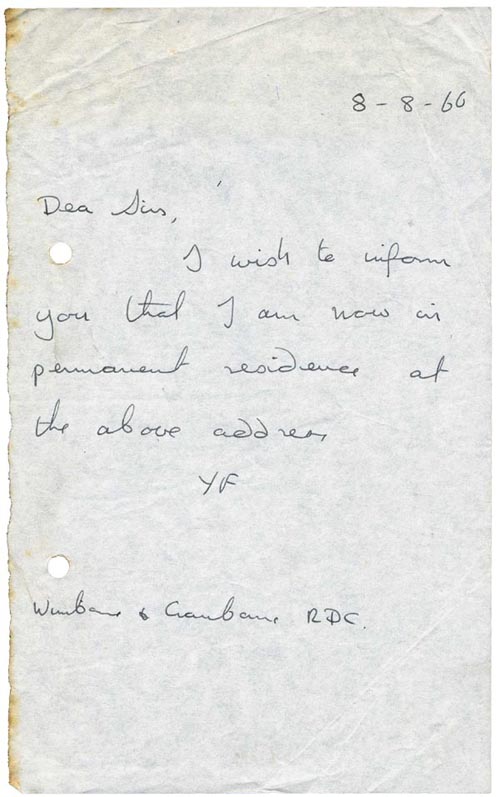 8 - 8 - 66
Dea Sirs,
I wish to inform
you that I am now in
permanent residence at
the above address
YF
Wimborne & Cranborne RDC.